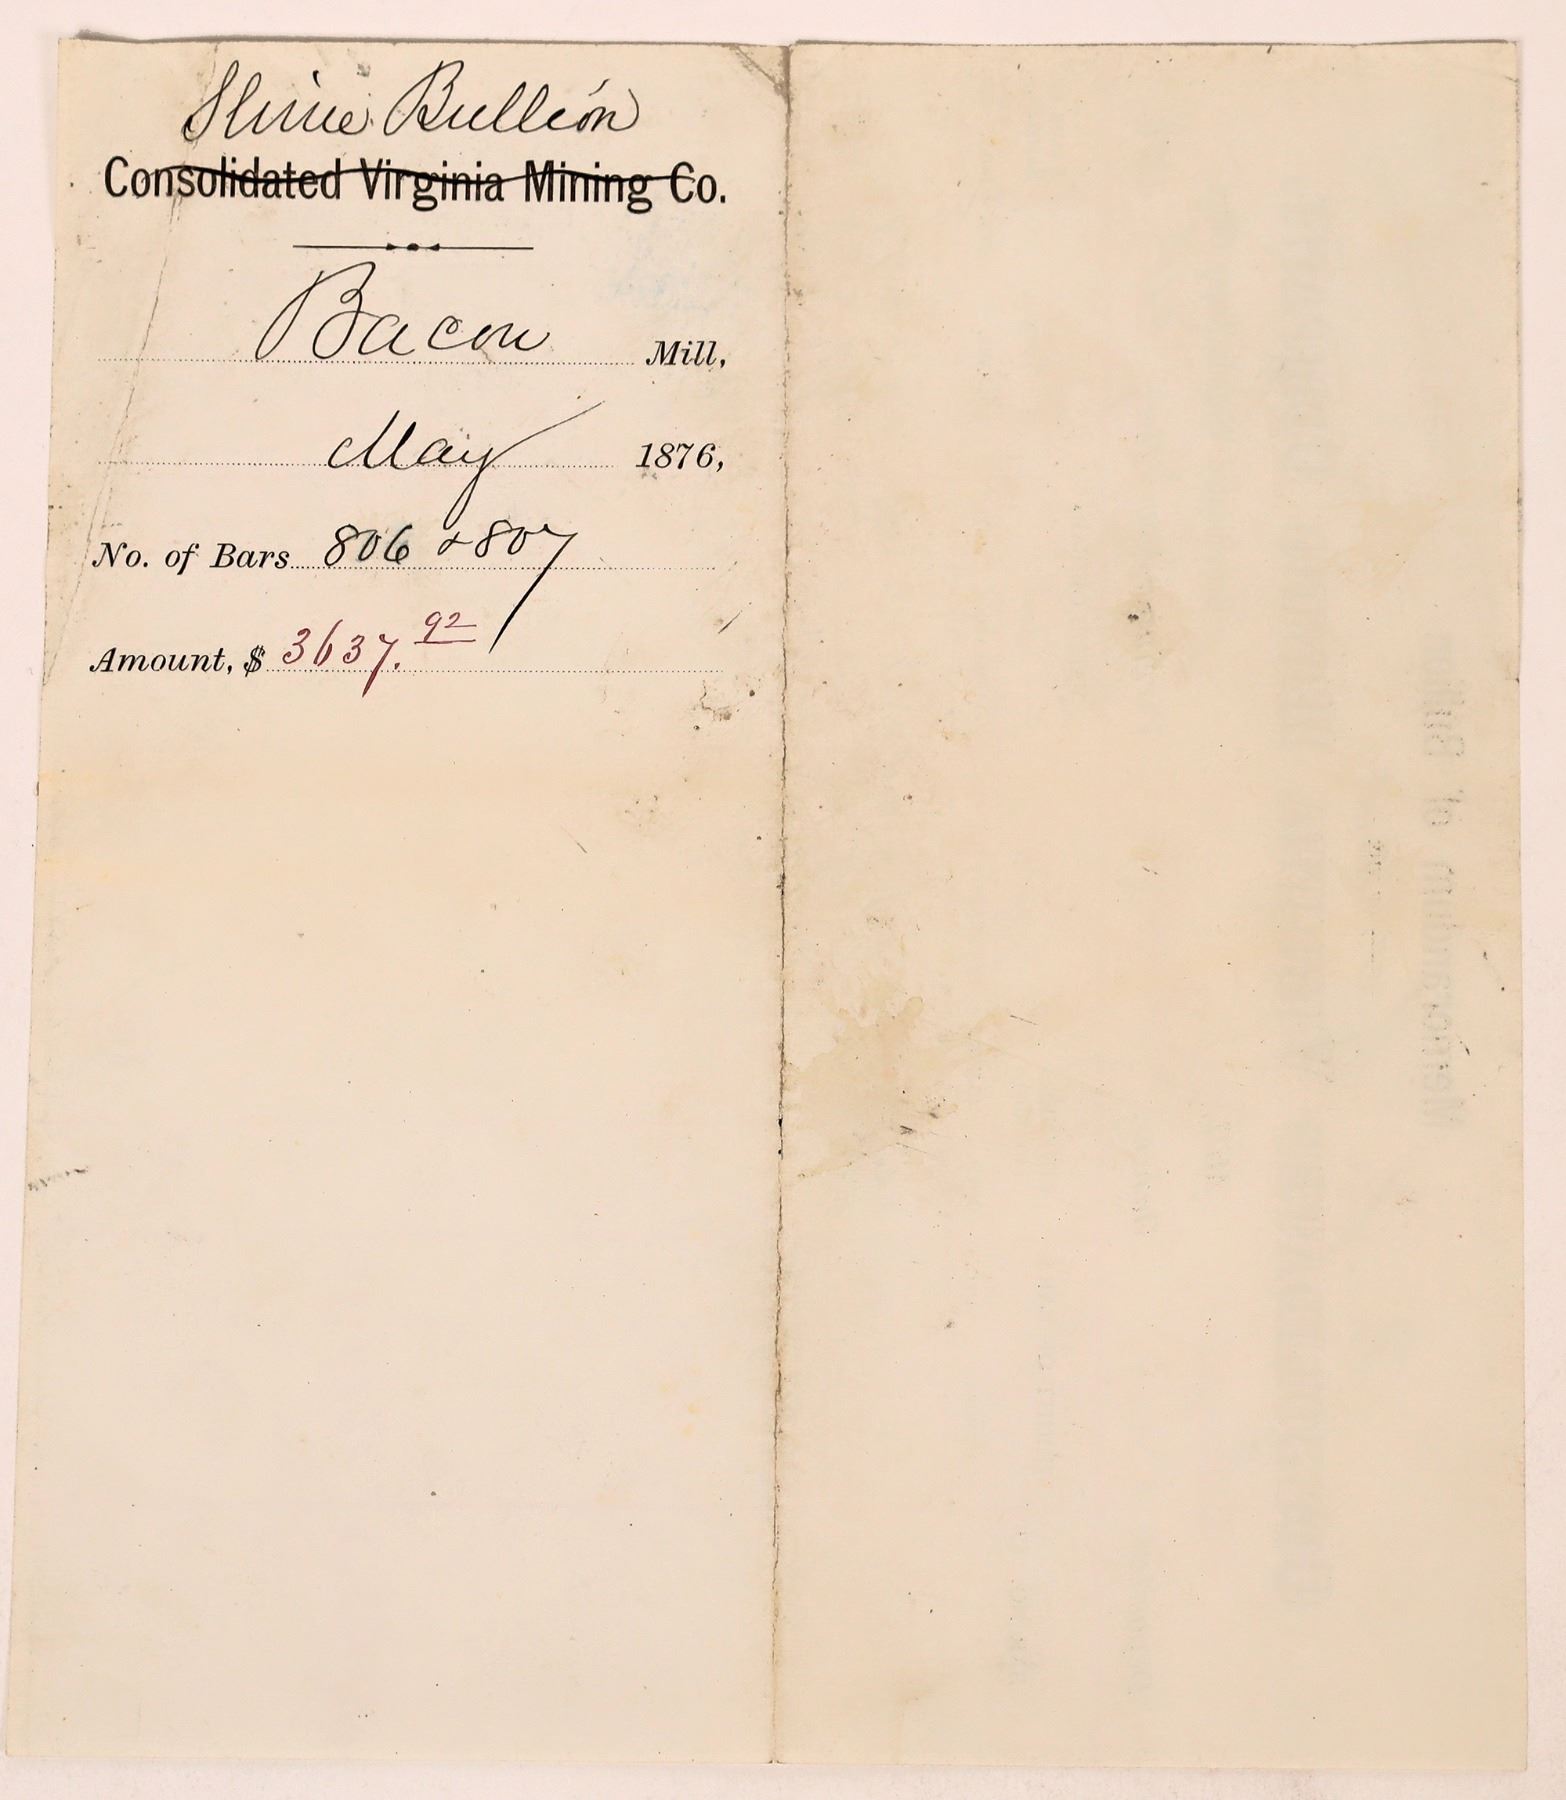 Slime Bullion
Consolidated Virginia Mining Co.
Bacon Mill,
May 1876,
No. of Bars 806 & 807
Amount, $ 3637.92
Memorandum of